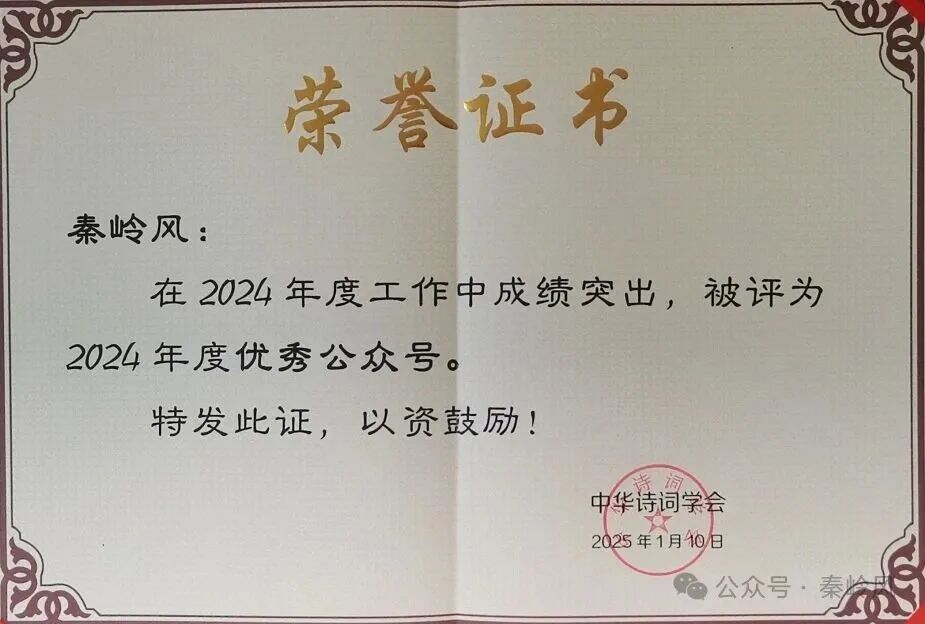 荣誉证书
秦岭风：
在2024年度工作中成绩突出，被评为
2024年度优秀公众号。
特发此证，以资鼓励！
诗词
中华诗词学会
2025年1月10日
公众号·秦岭风